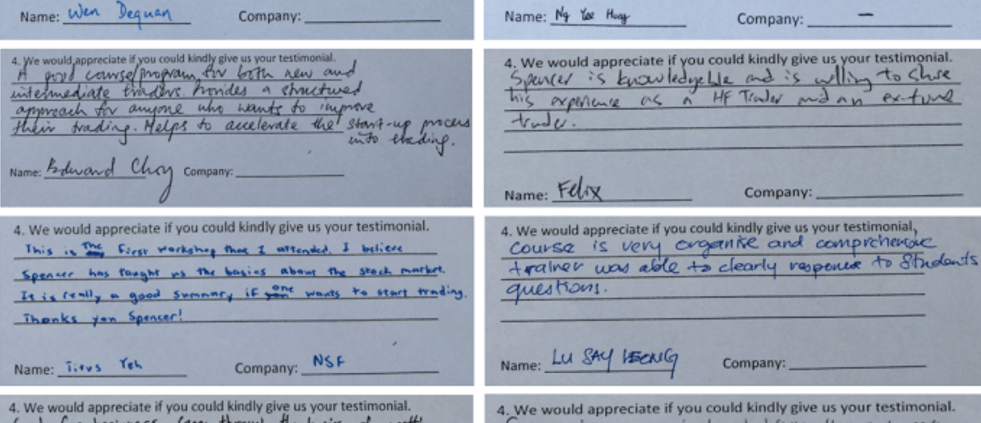 Name: Wen Dequan Company:
Name: Ng Yee Hong Company: –
4. We would appreciate if you could kindly give us your testimonial.
A good course/program for both new and
intermediate traders. Provides a structured
approach for anyone who wants to improve
their trading. Helps to accelerate the start-up process
into trading.
Name: Edward Choy Company:
4. We would appreciate if you could kindly give us your testimonial.
Spencer is knowledgeable and is willing to share
his experience as a HF Trader and an ex-fund
trader.
Name: Felix Company:
4. We would appreciate if you could kindly give us your testimonial.
This is the first workshop that I attended. I believe
Spencer has taught us the basics about the stock market.
It is really a good summary if one wants to start trading.
Thanks you Spencer!
Name: Titus Yeh Company: NSF
4. We would appreciate if you could kindly give us your testimonial,
course is very organise and comprehensive
trainer was able to clearly response to students
questions.
Name: LU SAY LEONG Company:
4. We would appreciate if you could kindly give us your testimonial.
4. We would appreciate if you could kindly give us your testimonial.